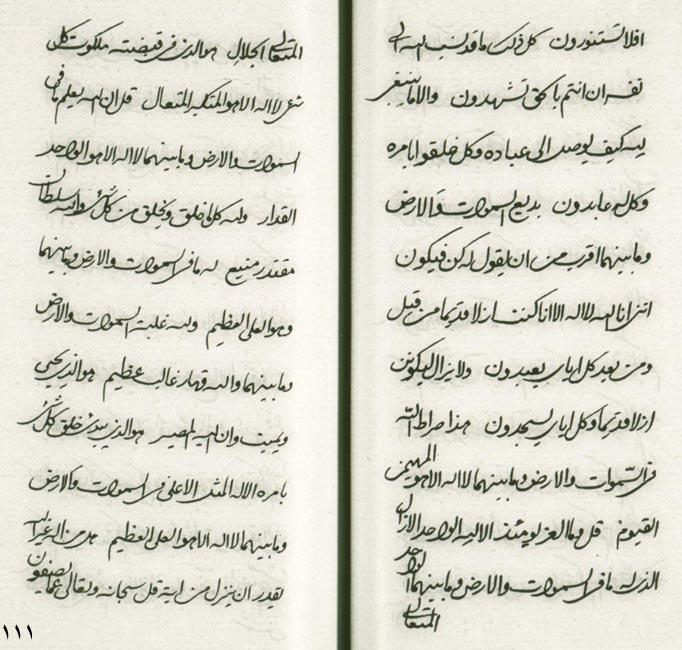 افلا تستنورون كل ذلك ما قد نسب الله الى
نفسه ان انتم بالحق تشهدون والا ما ينبغى
لله كيف يوصل الى عباده وكل خلقوا بامره
وكل له عابدون بديع السموات والارض
وما بينهما اقرب من ان يقول له كن فيكون
اننى انا الله لا اله الا انا كنت ازلا قديما من قبل
ومن بعد كل اياى يعبدون ولا يزال ليكونن
ازلا قديما وكل اياى يسجدون هذا صراط الله
فى السموات والارض وما بينهما لا اله الا هو المهيمن
القيوم قل وما العز يومئذ الا لله الواحد الازال
الذى له ما فى السموات والارض وما بينهما الواحد
المتعالى
المتعالى الجلال هو الذى فى قبضته ملكوت كل
شئ لا اله الا هو المتكبر المتعال قل ان الله يعلم ما فى
السموات والارض وما بينهما لا اله الا هو الواحد
القدار ولله كل ما خلق ويخلق من كل شئ والله سلطان
مقتدر منيع له ما فى السموات والارض وما بينهما
وهو العلى العظيم ولله غلبة السموات والارض
وما بينهما والله قهار غالب عظيم هو الذى يحيى
ويميت وان اليه المصير هو الذى يبدئ خلق كل شئ
بامره الا له المثل الاعلى فى السموات والارض
وما بينهما لا اله الا هو العلى العظيم هل من اله غير الله
يقدر ان ينزل من اية قل سبحانه وتعالى عما يصفون
١١١